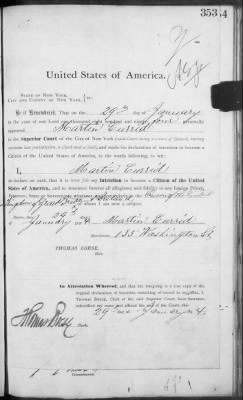 353 4
United States of America.
STATE OF NEW YORK,
CITY AND COUNTY OF NEW YORK, ss:
Be it Remembered, That on the 29th day of January
in the year of our Lord one thousand eight hundred and ninety four personally
appeared Martin Currid
in the Superior Court of the City of New York (said Court being a court of Record, having
common law jurisdiction, a clerk and a seal), and made his declaration of intention to become
Citizen of the United States of America, in the words following, to wit:
I, Martin Currid
do declare on oath, that it is bona fide my Intention to become a Citizen of the United
States of America, and to renounce forever all allegiance and fidelity to any foreign Prince,
Potentate, State or Sovereignty whatever, and
Kingdom of Great Britain & Ireland of whom I am now a subject.
29th
January 94 Martin Currid
135 Washington St.
THOMAS BOESE,
Clerk.
In Attestation Whereof, and that the foregoing is a true copy of the
original declaration of intention remaining of record in my office, I,
THOMAS BOESE, Clerk of the said Superior Court, have hereunto
subscribed my name and affixed the seal of the Court, this
29th January 94.
Thomas Boese
Clerk.